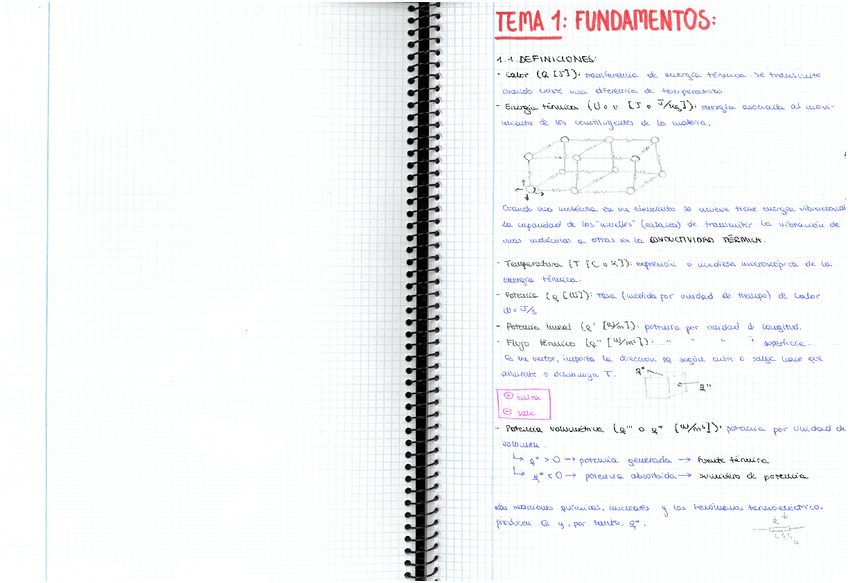 TEMA 1: FUNDAMENTOS:
1.1. DEFINICIONES:
- Calor (Q [J]): transferencia de energía térmica. Se transmite
cuando existe una diferencia de temperaturas
- Energía térmica (U o u [J o J/kg]): energía asociada al movi-
miento de los constituyentes de la materia.
Cuando una molécula en un elemento se mueve tiene energía vibracional
la capacidad de los "muelles" (enlaces) de transmitir la vibración de
unas moléculas a otras es la CONDUCTIVIDAD TÉRMICA.
- Temperatura (T [C o K]): expresión o medida macroscópica de la
energía térmica.
- Potencia (q [W]): tasa (medida por unidad de tiempo) de calor
W = J/s
- Potencia lineal (q' [W/m]): potencia por unidad de longitud.
- Flujo térmico (q'' [W/m²]): " " " " superficie.
Es un vector, importa la dirección según entre o salga hace que
aumente o disminuya T.
q'' q''
⊕ entra
⊖ sale
- Potencia volumétrica (q''' o q* [W/m³]): potencia por unidad de
volumen.
↳ q* > 0 → potencia generada → fuente térmica
↳ q* < 0 → potencia absorbida → sumidero de potencia
Las reacciones químicas, nucleares y los fenómenos termoeléctricos
producen Q y, por tanto, q*.